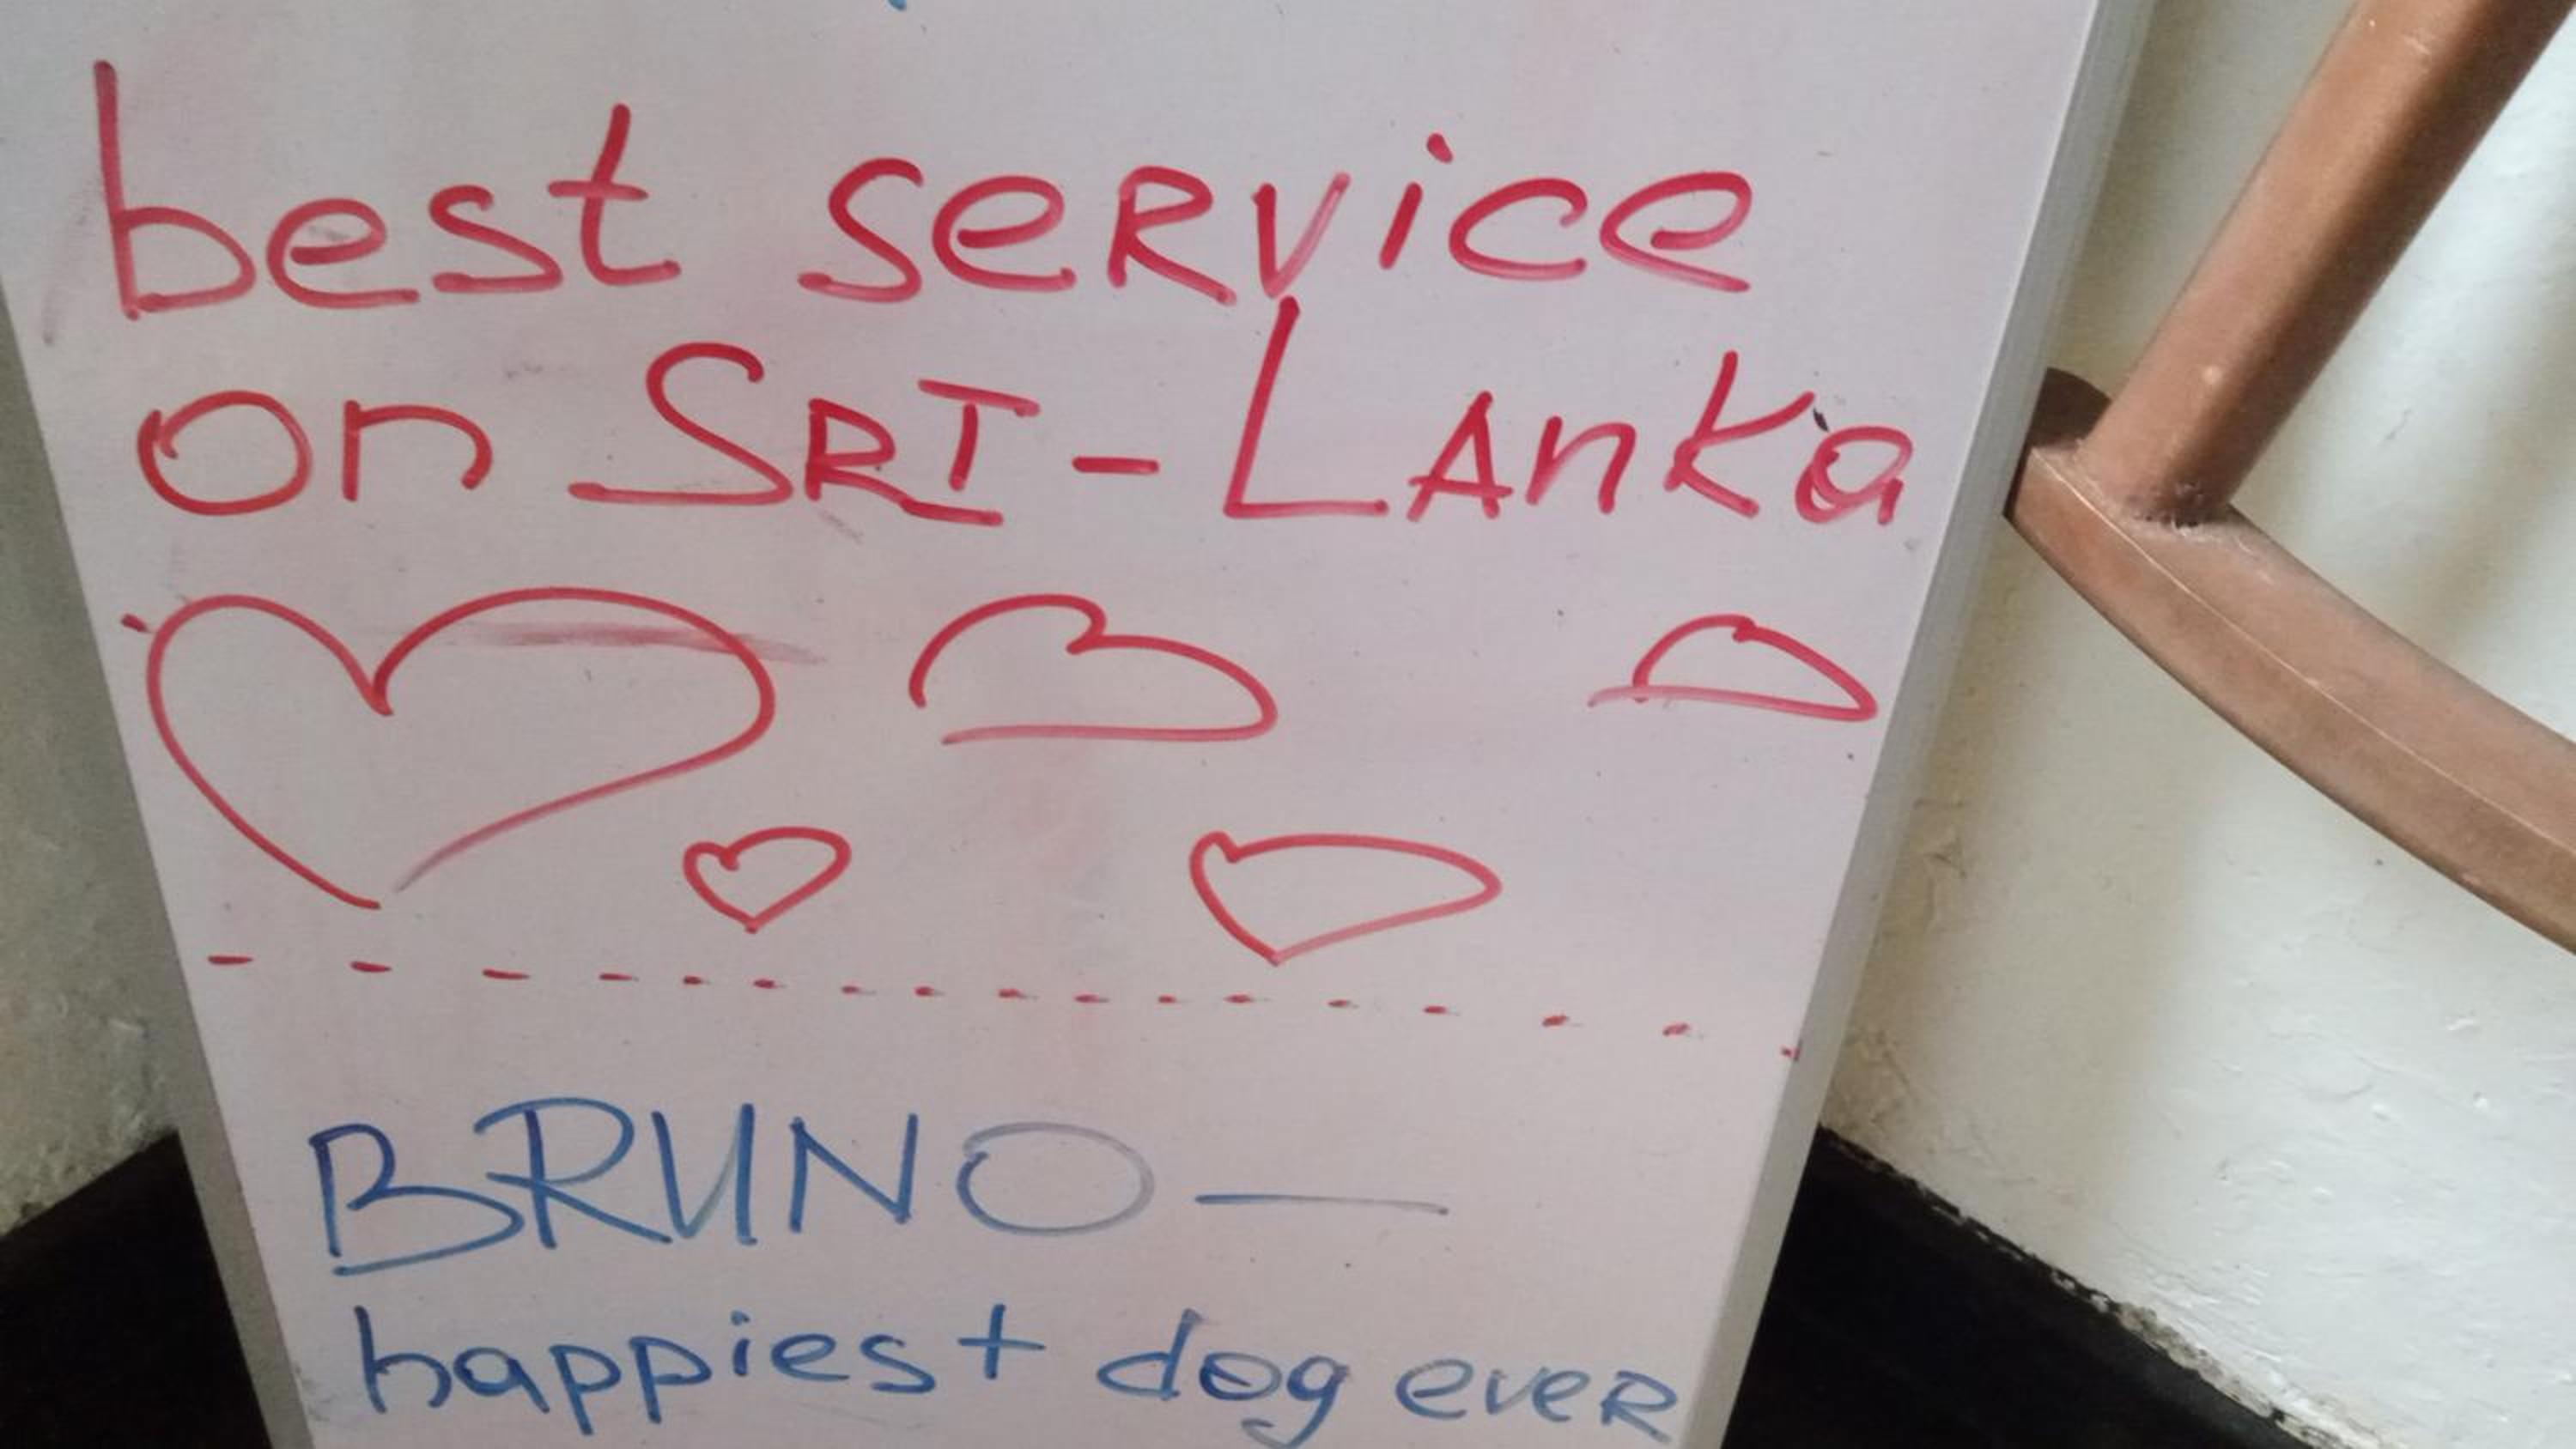 best service
on SRI-LAnka
BRUNO —
happiest dog ever